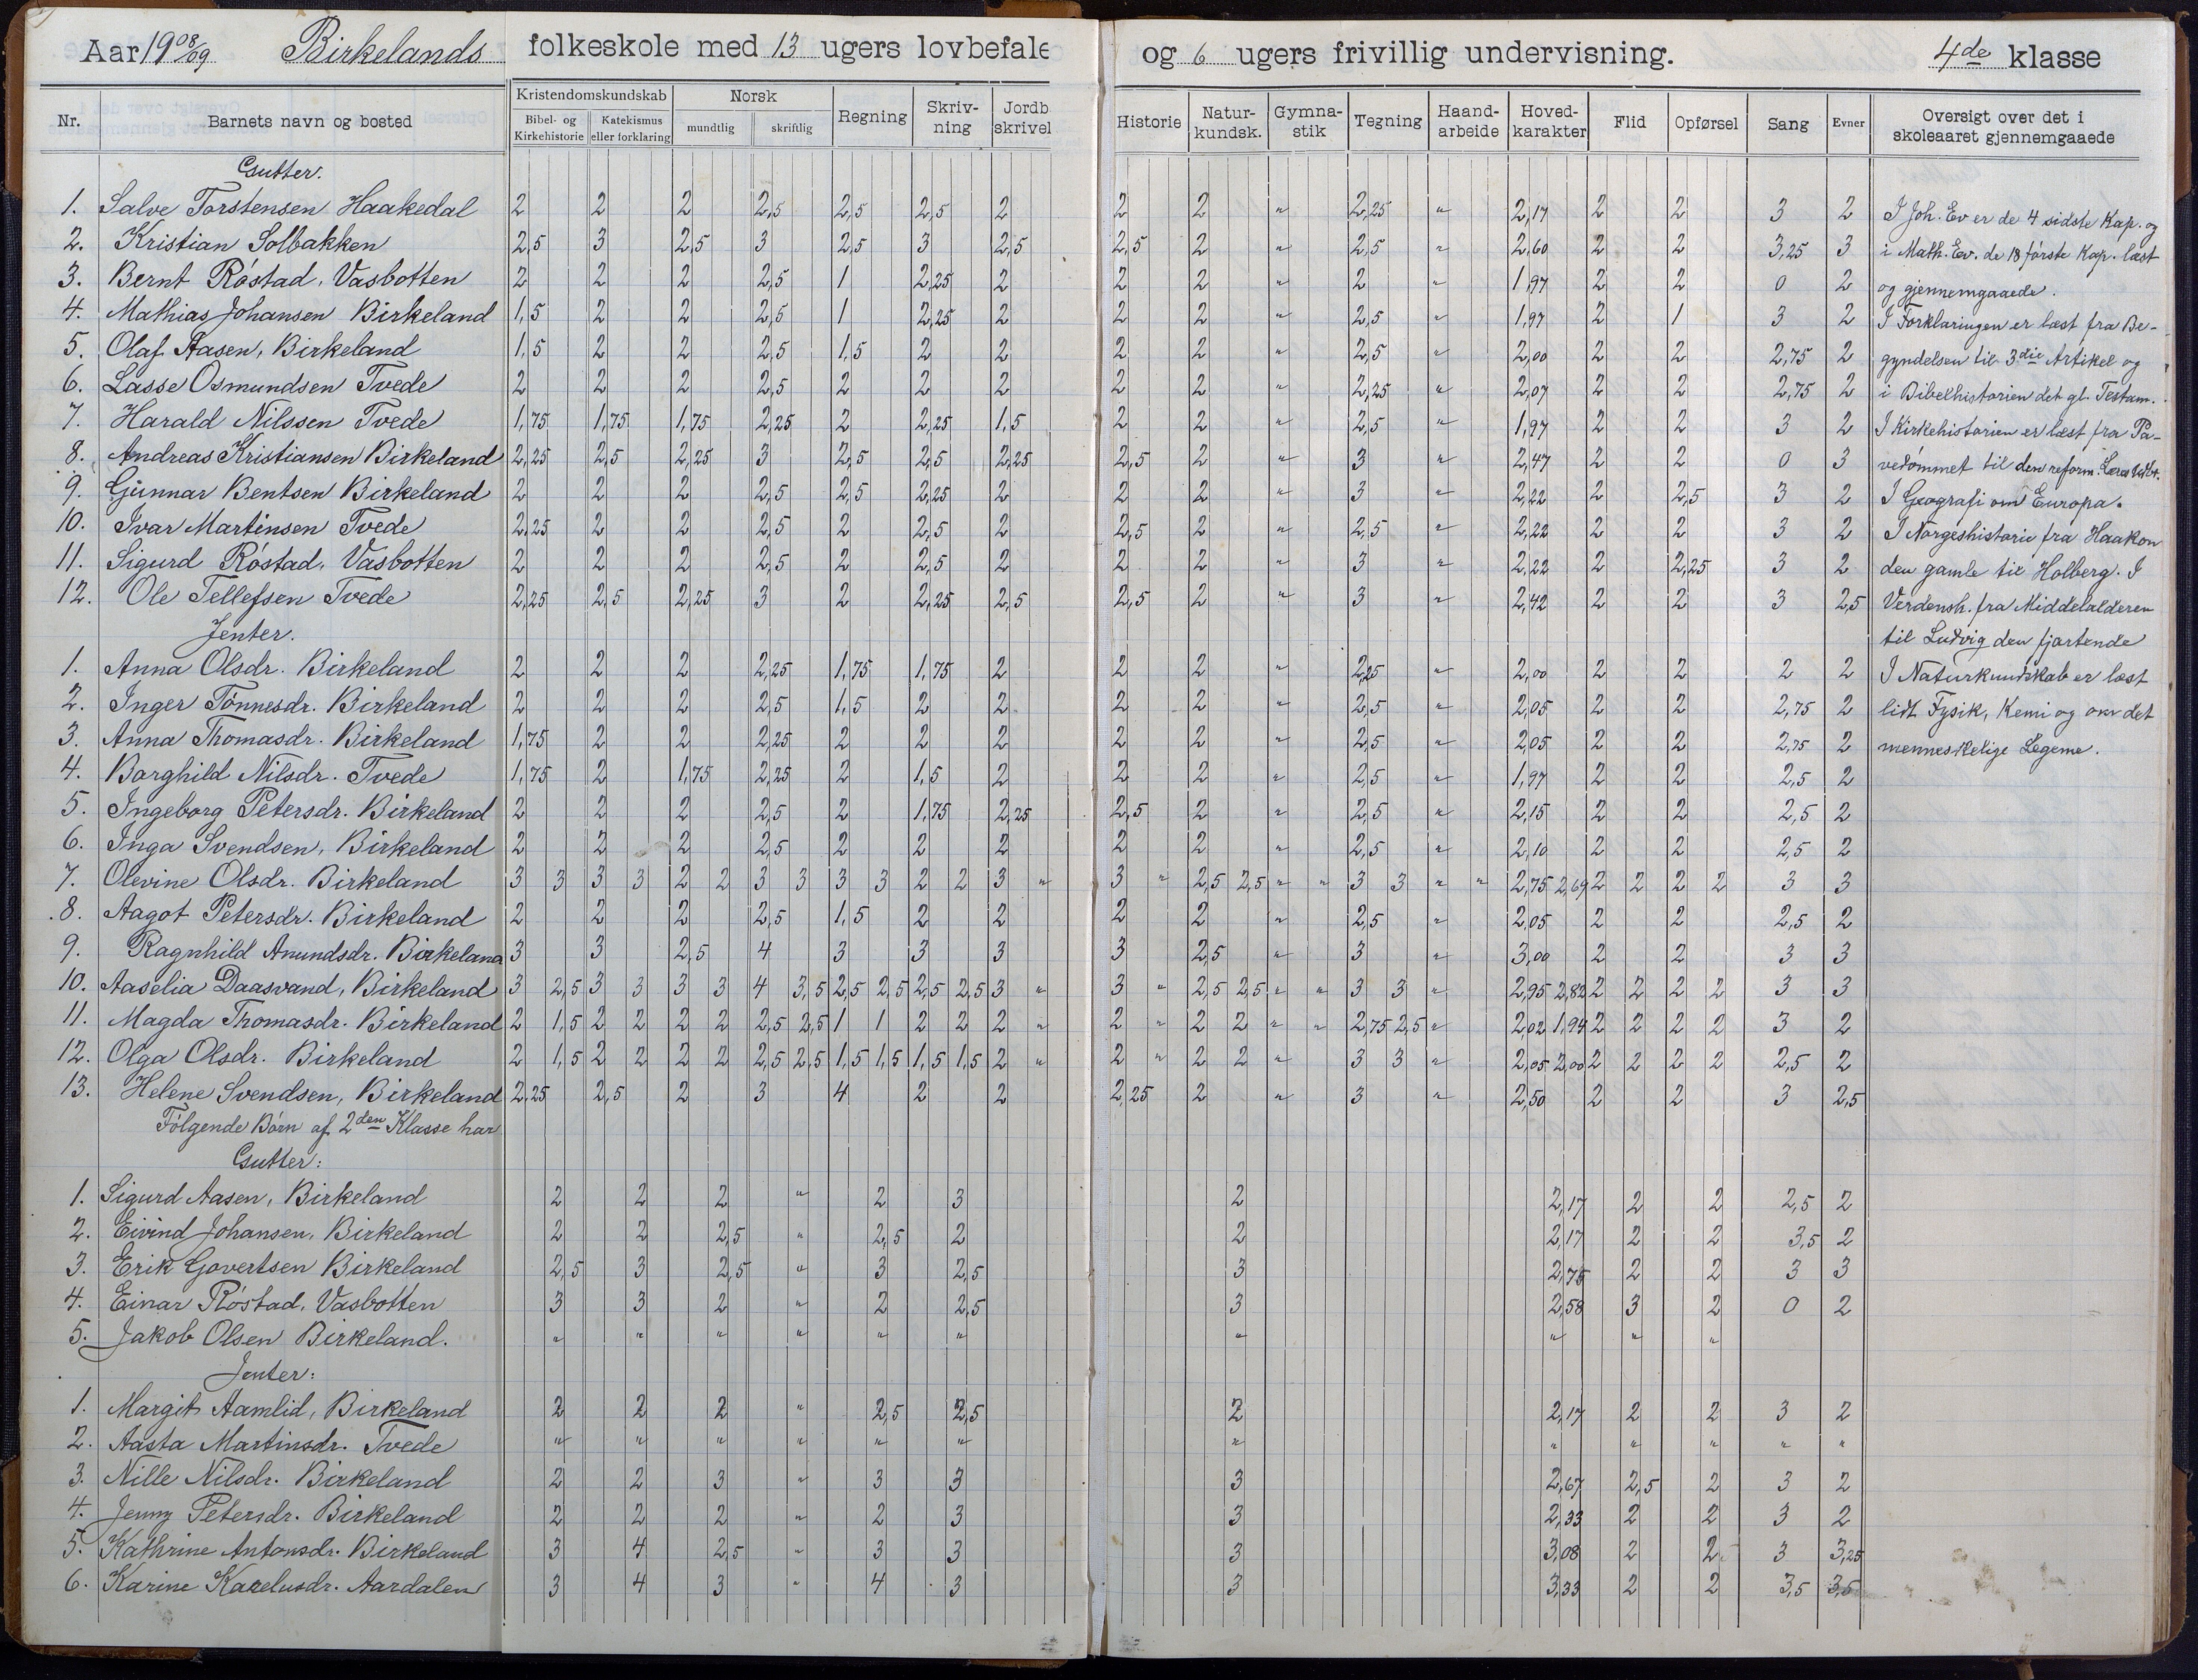 Aar 1908/09 Birkelands folkeskole med 13 ugers lovbefale og 6 ugers frivillig undervisning. 4de klasse
Nr. Barnets navn og bosted Kristendomskundskab Bibel- og Kirkehistorie Katekismus eller forklaring Norsk mundtlig skriftlig Regning Skriv-ning Jordb skrivel Historie Natur-kundsk. Gymna-stik Tegning Haand-arbeide Hoved-karakter Flid Opførsel Sang Evner Oversigt over det i skoleaaret gjennemgaaede
Gutter.
1. Salve Torstensen Haakedal 2 2 2 2,5 2,5 2,5 2 2 2 " 2,25 " 2,17 2 2 3 2 I Joh. Ev er de 4 sidste Kap. og
2. Kristian Solbakken 2,5 3 2,5 3 2,5 3 2,5 2,5 2 " 2,5 " 2,60 2 2 3,25 3 i Math. Ev. de 18 første Kap. læst
3. Bernt Røstad, Vasbotten 2 2 2 2,5 1 2,25 2 2 2 " 2 " 1,97 2 2 0 2 og gjennemgaaede.
4. Mathias Johansen Birkeland 1,5 2 2 2,5 1 2,25 2 2 2 " 2,5 " 1,97 2 1 3 2 I Forklaringen er læst fra Be-
5. Olaf Aasen, Birkeland 1,5 2 2 2,5 1,5 2 2 2 2 " 2,5 " 2,00 2 2 2,75 2 gyndelsen til 3die Artikel og
6. Lasse Osmundsen Tvede 2 2 2 2,5 2 2 2 2 2 " 2,25 " 2,07 2 2 2,75 2 i Bibelhistorien det gl. Testam.
7. Harald Nilssen Tvede 1,75 1,75 1,75 2,25 2 2,25 1,5 2 2 " 2,5 " 1,97 2 2 3 2 I Kirkehistorien er læst fra Pa-
8. Andreas Kristiansen Birkeland 2,25 2,5 2,25 3 2,5 2,5 2,25 2,5 2 " 3 " 2,47 2 2 0 3 vedømmet til den reform. Læres Udbr.
9. Gunnar Bentsen Birkeland 2 2 2 2,5 2,5 2,25 2 2 2 " 3 " 2,22 2 2,5 3 2 I Geografi om Europa.
10. Ivar Martinsen Tvede 2,25 2 2 2,5 2 2,5 2 2,5 2 " 2,5 " 2,22 2 2 3 2 I Norgeshistorie fra Haakon
11. Sigurd Røstad, Vasbotten 2 2 2 2,5 2 2,5 2 2 2 " 3 " 2,22 2 2,25 3 2 den gamle til Holberg. I
12. Ole Tellefsen Tvede 2,25 2,5 2,25 3 2 2,25 2,5 2,5 2 " 3 " 2,42 2 2 3 2,5 Verdensh. fra Middelalderen
Jenter. til Ludvig den fjortende
1. Anna Olsdr. Birkeland 2 2 2 2,25 1,75 1,75 2 2 2 " 2,25 " 2,00 2 2 2 2 I Naturkundskab er læst
2. Inger Tønnesdr. Birkeland 2 2 2 2,5 1,5 2 2 2 2 " 2,5 " 2,05 2 2 2,75 2 lidt Fysik, Kemi og om det
3. Anna Thomasdr. Birkeland 1,75 2 2 2,25 2 2 2 2 2 " 2,5 " 2,05 2 2 2,75 2 menneskelige Legeme.
4. Borghild Nilsdr. Tvede 1,75 2 1,75 2,25 2 1,5 2 2 2 " 2,5 " 1,97 2 2 2,5 2
5. Ingeborg Petersdr. Birkeland 2 2 2 2,5 2 1,75 2,25 2,5 2 " 2,5 " 2,15 2 2 2,5 2
6. Inga Svendsen, Birkeland 2 2 2 2,5 2 2 2 2 2 " 2,5 " 2,10 2 2 2,5 2
7. Olevine Olsdr. Birkeland 3 3 3 3 2 2 3 3 3 3 2 2 3 " 3 " 2,5 2,5 " " 3 3 " " 2,75 2,69 2 2 2 2 3 3
8. Aagot Petersdr. Birkeland 2 2 2 2,5 1,5 2 2 2 2 " 2,5 " 2,05 2 2 2,5 2
9. Ragnhild Anundsdr. Birkeland 3 3 2,5 4 3 3 3 3 2,5 " 3 " 3,00 2 2 3 3
10. Aaselia Daasvand, Birkeland 3 2,5 3 3 3 3 4 3,5 2,5 2,5 2,5 2,5 3 " 3 " 2,5 2,5 " " 3 3 " 2,95 2,82 2 2 2 2 3 3
11. Magda Thomasdr. Birkeland 2 1,5 2 2 2 2 2,5 2,5 1 1 2 2 2 " 2 " 2 2 " " 2,75 2,5 " 2,02 1,94 2 2 2 2 3 2
12. Olga Olsdr. Birkeland 2 1,5 2 2 2 2 2,5 2,5 1,5 1,5 1,5 1,5 2 " 2 " 2 2 " 3 3 " 2,05 2,00 2 2 2 2 2,5 2
13. Helene Svendsen, Birkeland 2,25 2,5 2 3 4 2 2 2,25 2 " 3 " 2,50 2 2 3 2,5
Følgende Børn af 2den Klasse har
Gutter:
1. Sigurd Aasen, Birkeland 2 2 2 " 2 3 2 2,17 2 2 2,5 2
2. Eivind Johansen, Birkeland 2 2 2,5 " 2,5 2 2 2,17 2 2 3,5 2
3. Erik Govertsen Birkeland 2,5 3 2,5 " 3 2,5 3 2,75 2 2 3 3
4. Einar Røstad, Vasbotten 3 3 2 " 2 2,5 3 2,58 3 2 0 2
5. Jakob Olsen Birkeland. " " " " " " " " " "
Jenter:
1. Margit Aamlid, Birkeland 2 2 2 " 2,5 2,5 2 2,17 2 2 3 2
2. Aasta Martinsdr. Tvede " " " " " " " " " " " "
3. Nille Nilsdr. Birkeland 2 2 3 " 3 3 3 2,67 2,5 2 3 2
4. Jenny Petersdr. Birkeland 2 2 2 " 2 3 3 2,33 2 2 3 2
5. Kathrine Antonsdr. Birkeland 3 4 2,5 " 3 3 3 3,08 2 2 3 3,25
6. Karine Karelusdr. Aardalen 3 4 3 " 4 3 3 3,33 2 2 3,5 3,5